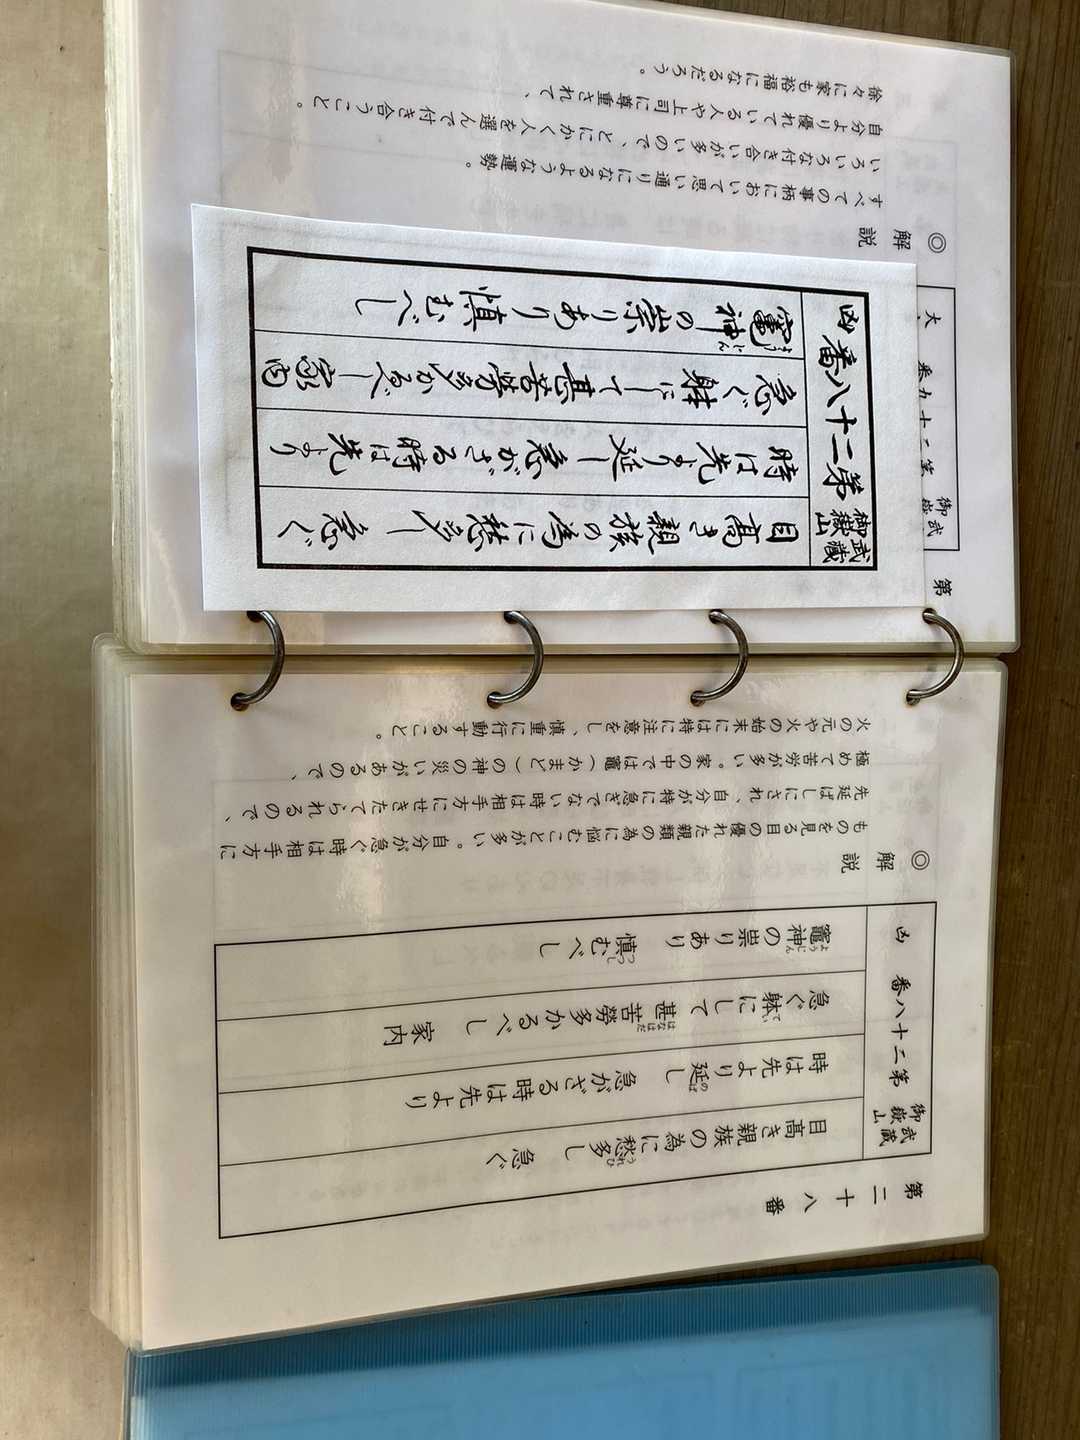 武蔵
御嶽山
第二十八番
凶
目高き親族の為に愁多し 急ぐ
時は先より延し 急がざる時は先より
急ぐ躰にして甚苦労多かるべし 家内
竈神の祟りあり 慎むべし
第二十八番
武蔵
御嶽山
第二十八番
凶
目高き親族の為に愁多し 急ぐ
時は先より延し 急がざる時は先より
急ぐ躰にして 甚苦勞多かるべし 家内
竈神の祟りあり 慎むべし
◎
解説
ものを見る目の優れた親類の為に悩むことが多い。自分が急ぐ時は相手方に
先延ばしにされ、自分が特に急ぎでない時は相手方にせきたてられるので、
極めて苦労が多い。家の中では竈（かまど）の神の災いがあるので、
火の元や火の始末には特に注意をし、慎重に行動すること。
第
武
御
第二十九番
大
◎
解説
すべての事柄において思い通りになるような運勢。
いろいろな付き合いが多いので、とにかく人を選んで付き合うこと。
自分より優れている人や上司に尊重されて、
徐々に家も裕福になるだろう。